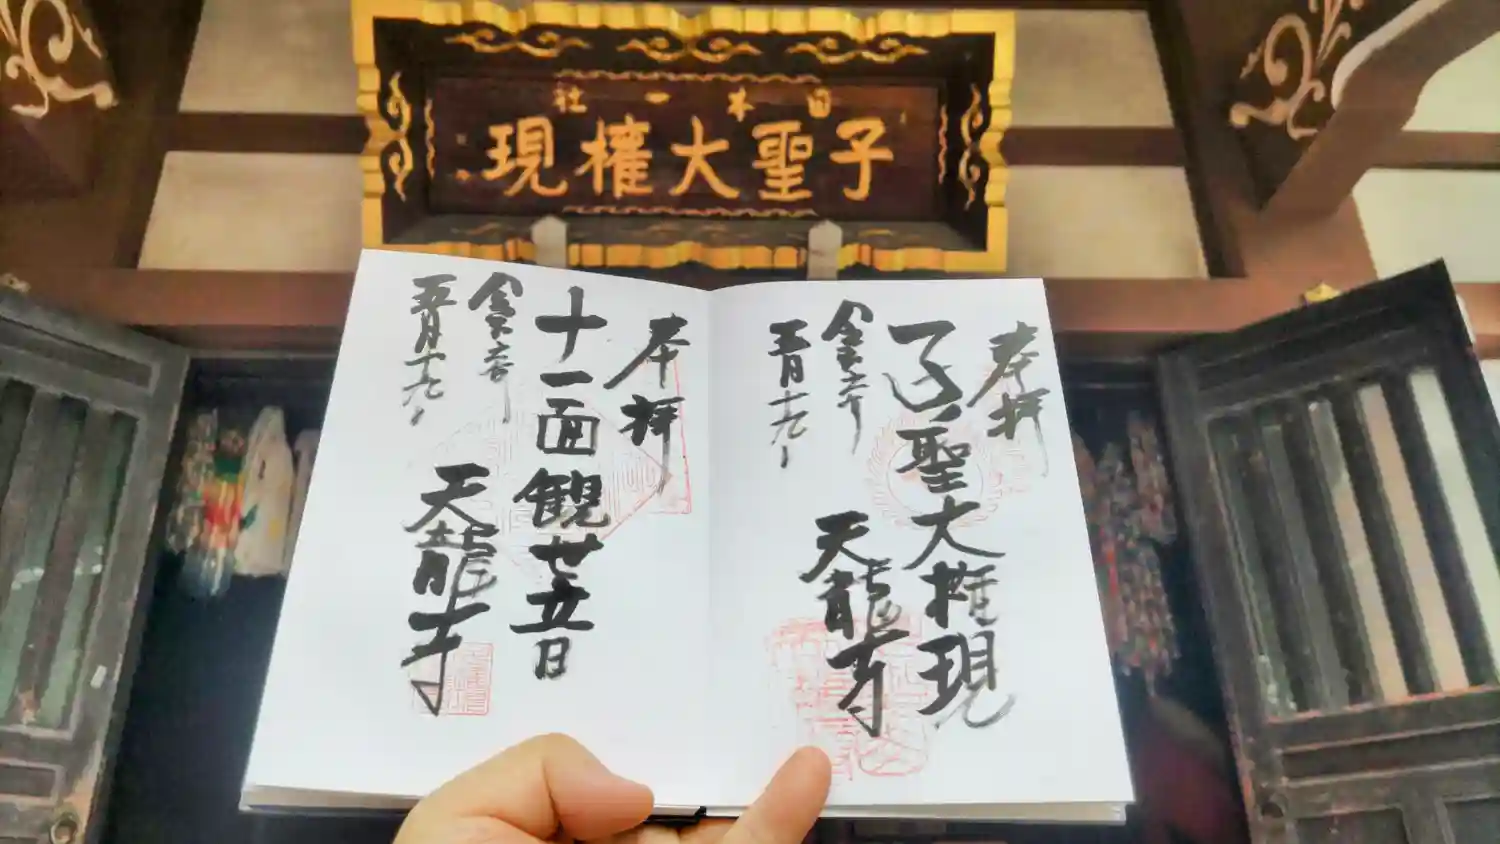 日本一社
子聖大権現
奉拝
子ノ聖大権現
令和六年
五月十九日
天龍寺
奉拝
十一面観世音
令和六年
五月十九日
天龍寺